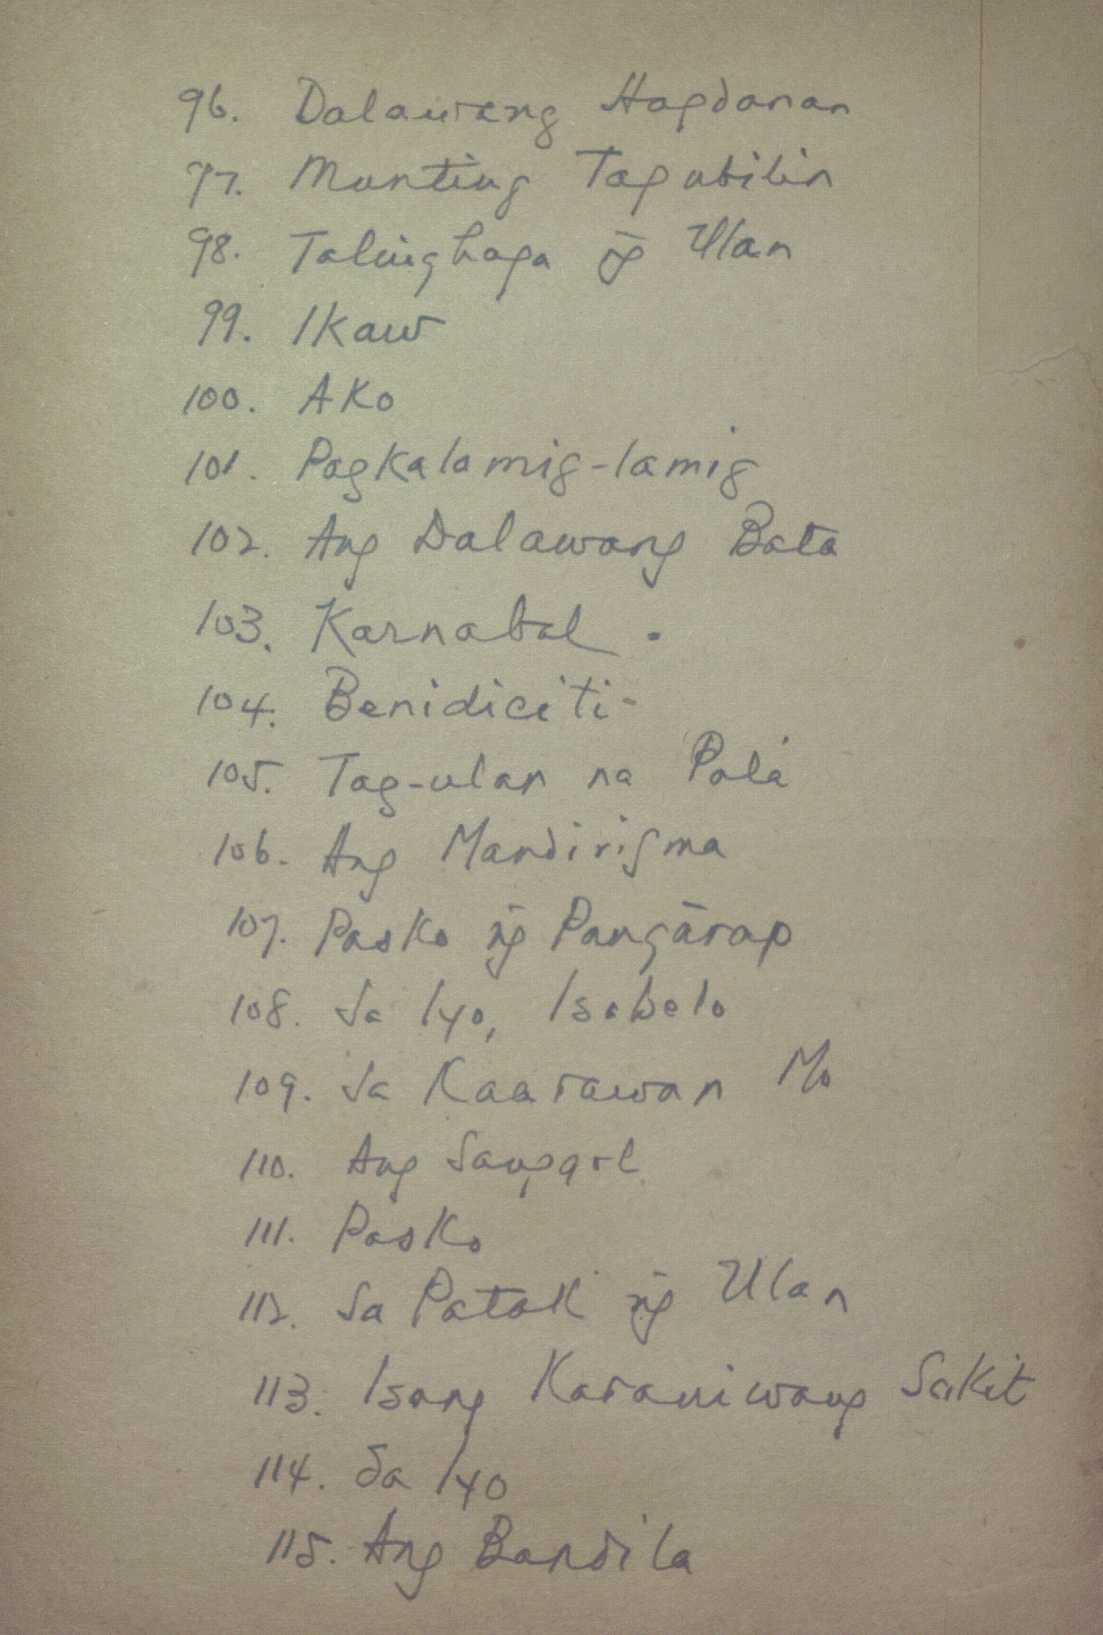 96. Dalawang Hagdanan
97. Munting Tagubilin
98. Talinghaga ng̃ Ulan
99. Ikaw
100. Ako
101. Pagkalamig-lamig
102. Ang Dalawang Bata
103. Karnabal.
104. Benidiciti-
105. Tag-ulan na Palá
106. Ang Mandirigma
107. Pasko ng̃ Pangarap
108. Sa Iyo, Isabelo
109. Sa Kaarawan Mo
110. Ang Sanggol
111. Pasko
112. Sa Patak ng̃ Ulan
113. Isang Karaniwang Sakit
114. Sa Iyo
115. Ang Bandila